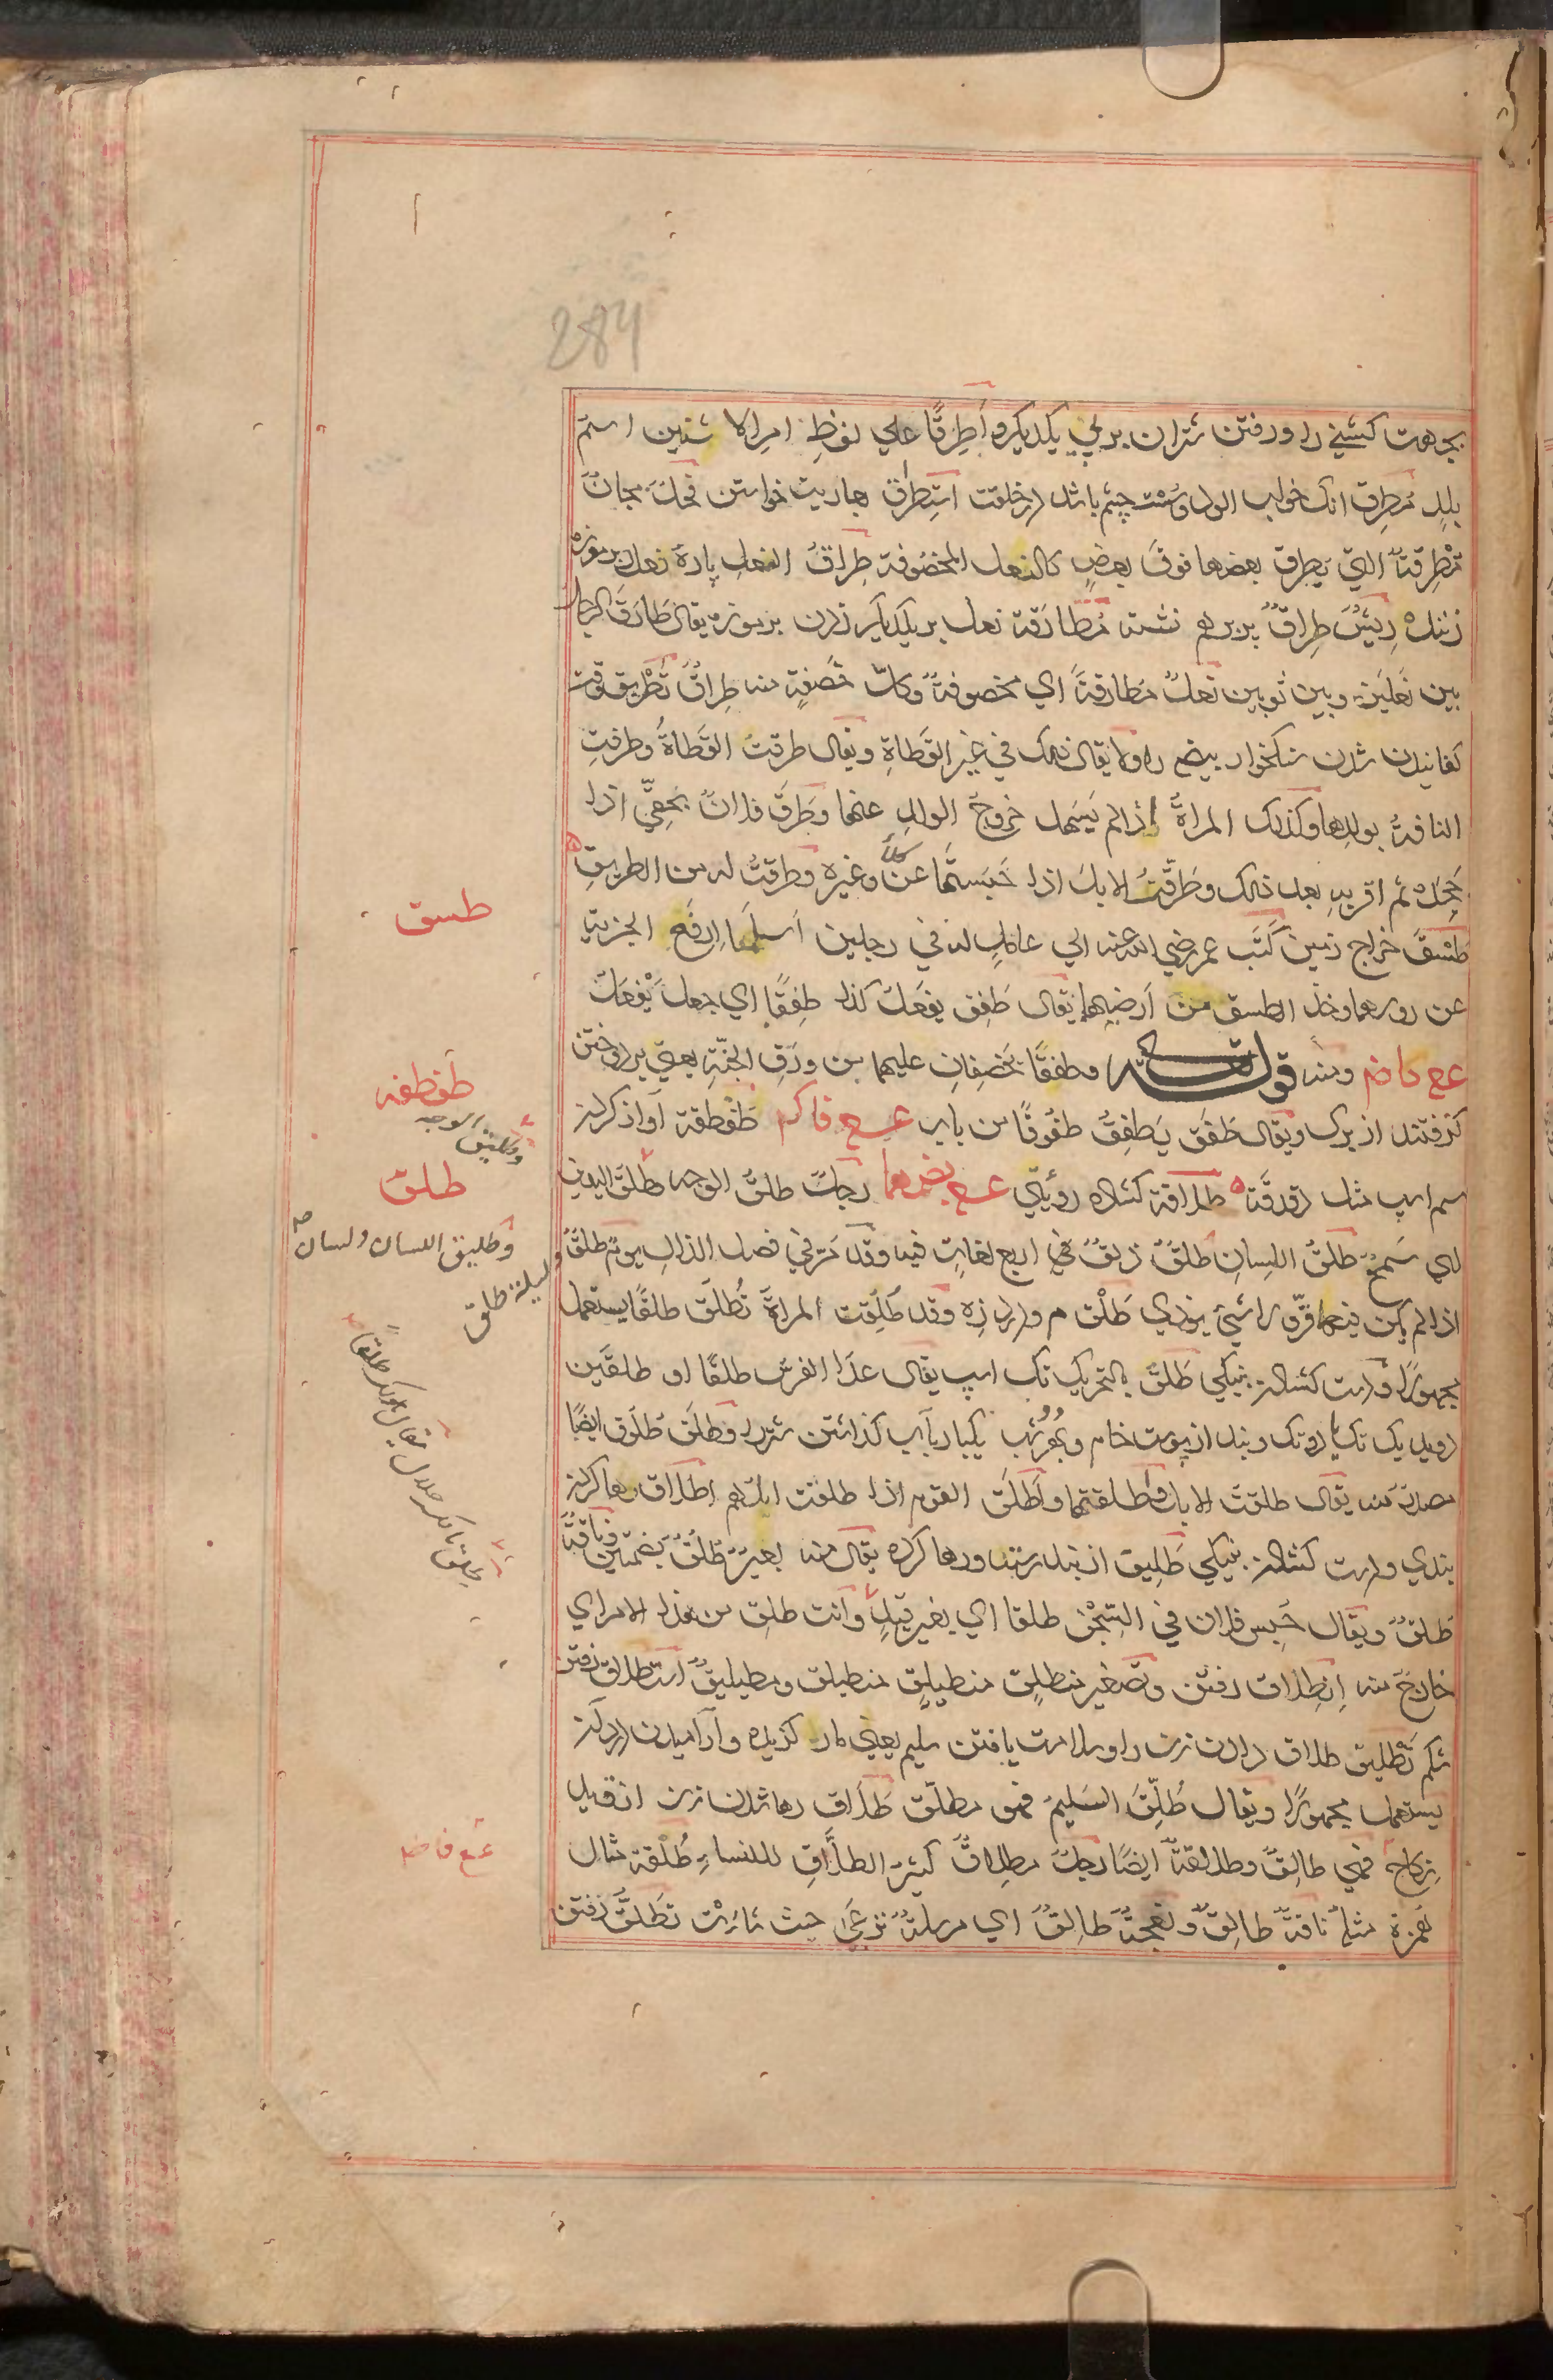 284
بجهت کشتی را و رفتن شتران بر پی یکدیگر و اَطرِقا علی لفظِ امر الاثنین اسم
بلدٍ مُطرِق انک خواب الود و سُست چشم باشد در خلقت استِطراق عاریت خواستن فحل مجانّ
مُطرَقة التي یطرق بعضها فوقَ بعضٍ کالنعل المخصوفة طِراق النعلِ پارهٔ نعل بر موزه
زنند ریشٌ طِراقٌ پر بر هم نشسته مُطارَقة نعل بر یکدیکر زدن بر موزه یقال طارَقَ الرجل
بین نعلین و بین ثوبین نعلٌ مطارقةٌ اي مخصوفةٌ و کلّ خَصفةٍ منه طِراقٌ تطریق وقت
کفانیدن شدن سنکخوار بیضه را و لا یقال ذلک في غیر القَطاةِ و یقال طرقت القَطاةُ و طرقتِ
الناقةُ بولدها و کذلک المراةُ اذا لم یَسهل خروجُ الولدِ عنها و طَرَّقَ فلانٌ بحقّي اذا
جَحَده ثم اقر به بعد ذلک و طَرَّقتُ الابلَ اذا حَبَستَها عن کلأ و غیره و طرقتُ له من الطریقِ
طَسقٌ خراج زمین کَتَب عمر رضي الله عنه الي عاملٍ له في رجلین اَسلَما اِرفَع الجزیة
عن روسهما و خذ الطسق من اَرضیهما یقال طَفِق یفعَل کذا طِفِقًا اي جعل یَفعَل
عع فاضم و منه قوله تعالی و طفقا یخصِفانِ علیهما من ورَقِ الجنّةِ یعني بر دوختن
کرفتند از برک و یقال طَفَق یَطفِقُ طفُوقًا من باب عع فاکم طَقطَقة آواز کردن
سم اسپ مثل دَقدَقَة طلاقة کشاده رویي عع بضمهما رجلٌ طلقُ الوجه و طلق الیدین
اي سَمحٌ طلقُ اللسانِ طلقٌ ذلقٌ في اربع لغات فیه و قد مرّ في فصل الذال یومٌ طلقٌ
اذا لم یکن فیهما قرّ و لا شيء یوذي طَلْق م و درد زه و قد طُلِقت المراةُ تُطلَق طلقًا یستعمل
مجهورا و دست کشادن بنیکي طَلَق بالتحریک تک اسپ یقال عَدا الفرسُ طلقًا او طلقَین
دوید یک تک یا دو تک و بند از پوست خام و بُعد شب یکبار باب کذاشتن شتر را و طَلق طُلوق ایضًا
مصدر منه یقال طلقت الابلُ و اطلقتها و اَطلَق القوم اذا طلقت ابلهم اطلاق رها کردن
بندي و دست کشادن بنیکي طَلِیق از بند رسته و رها کرده یقال منه بعیرٌ طُلُقٌ بضمتین و ناقةٌ
طُلُقٌ و یقال حُبِس فلان في السّجن طلقا اي بغیر قیدٍ و انت طلق من هذا الامر اي
خارج منه اِنطِلاق رفتن و تصغیر منطلق منطیلق و مطیلیق استطلاق رفتن
شکم تَطلیق طلاق دادن زن را و سلامت یافتن سلیم یعني مار کزیده و آرامیدن درد که
یستعمل مجهورًا و یقال طُلِّقَ السَلیمُ فهو مطلّق طَلاق رها شدن زن از قید
نکاح فهي طالِقٌ و طالقةٌ ایضًا رجلٌ مطلاقٌ کثیر الطلاقِ للنساء طُلَقة مثال
هُمزة مثله ناقةٌ طالِقٌ و نعجةٌ طالِقٌ اي مرسلةٌ ترعَی حیث شاءت تَطَلُّق رفتن
طسق
طقطقه
و طلیق الوجه
طلق
و طلیق اللسان و لسان
و لیلة طلق
عع فاضم